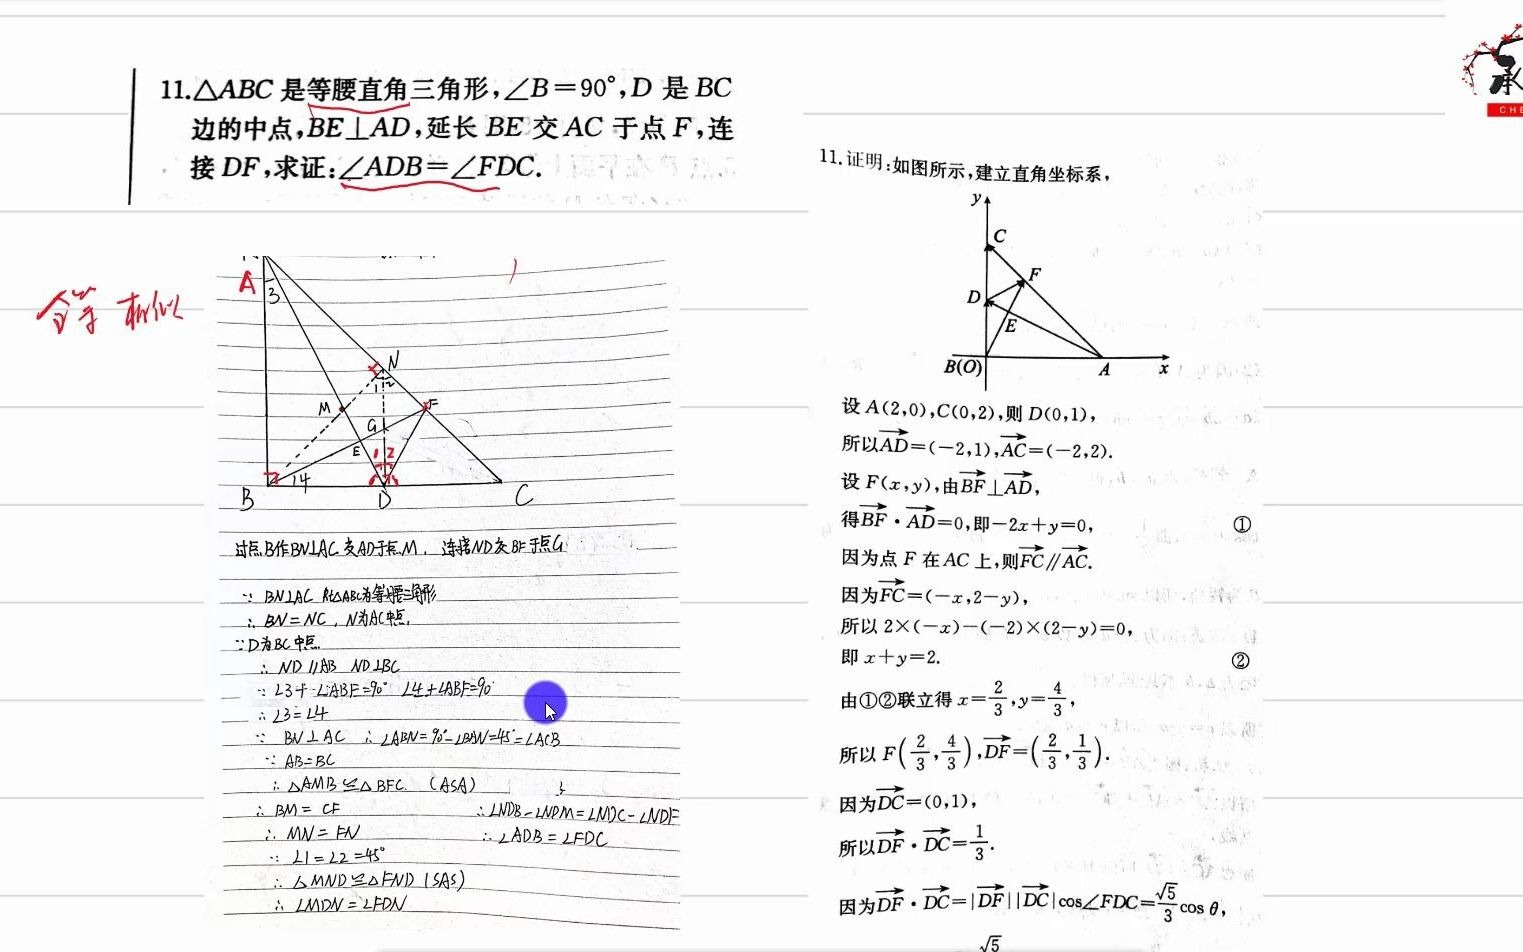 11.△ABC 是等腰直角三角形,∠B=90°,D 是 BC
边的中点,BE⊥AD,延长 BE 交 AC 于点 F,连
接 DF,求证:∠ADB=∠FDC.
全等 相似
A
3
N
1
2
M
F
G
E
1 2
1 4
B
D
C
过点B作BN⊥AC 交AD于点M, 连接ND交BF于点G
∵ BN⊥AC Rt△ABC为等腰三角形
∴ BN=NC, N为AC中点,
∵D为BC中点
∴ ND∥AB ND⊥BC
∵ ∠3+∠ABF=90° ∠4+∠ABF=90°
∴ ∠3=∠4
∵ BN⊥AC ∴ ∠ABN=90°-∠BAN=45°=∠ACB
∵ AB=BC
∴ △AMB≌△BFC. (ASA)
∴ BM=CF
∴ MN=FN
∵ ∠1=∠2=45°
∴ △MND≌△FND (SAS)
∴ ∠MDN=∠FDN
∴∠NDB-∠NDM=∠NDC-∠NDF
∴ ∠ADB=∠FDC
11.证明:如图所示,建立直角坐标系,
y
C
F
D
E
B(O)
A
x
设 A(2,0),C(0,2),则 D(0,1),
所以AD=(-2,1),AC=(-2,2).
设 F(x,y),由BF⊥AD,
得BF·AD=0,即-2x+y=0, ①
因为点 F 在 AC 上,则FC∥AC.
因为FC=(-x,2-y),
所以 2×(-x)-(-2)×(2-y)=0,
即 x+y=2. ②
由①②联立得 x=2/3,y=4/3,
所以 F(2/3,4/3),DF=(2/3,1/3).
因为DC=(0,1),
所以DF·DC=1/3.
因为DF·DC=|DF||DC|cos∠FDC=√5/3 cos θ,
√5
承
CHE